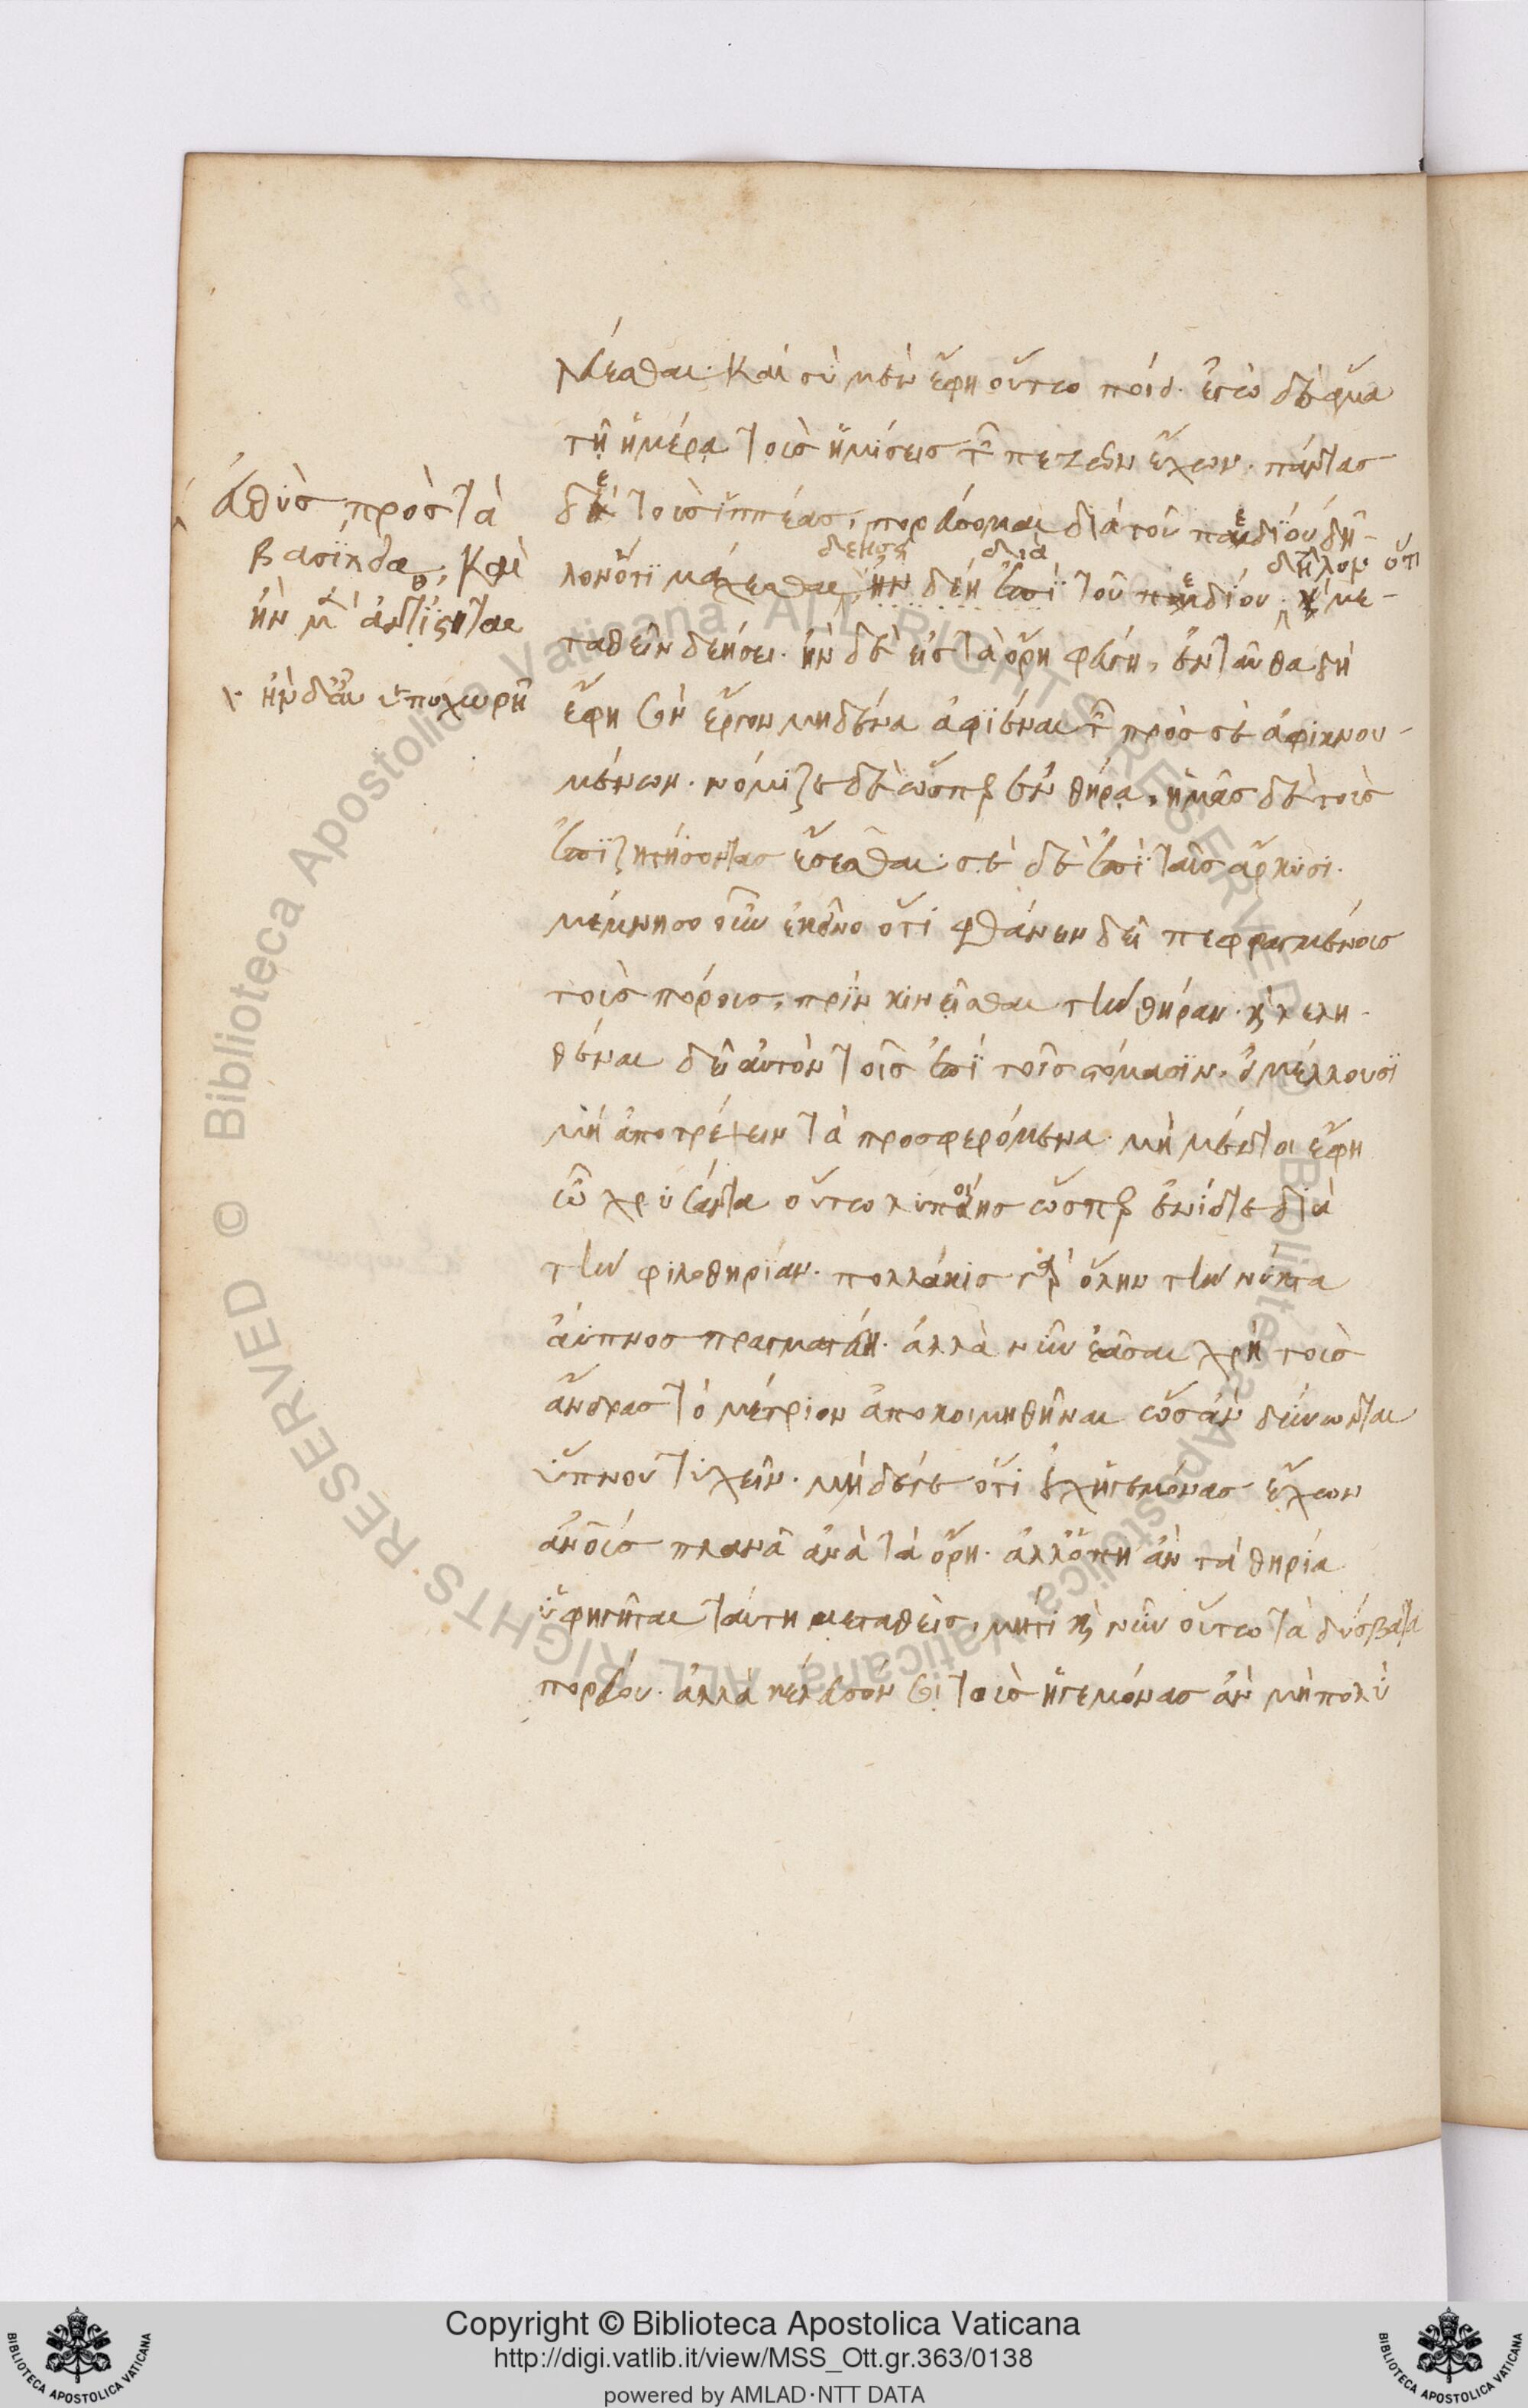 λεύεσθαι. Καὶ σὺ μὲν ἔφη οὕτω ποίει. ἐγὼ δὲ ἅμα
τῇ ἡμέρᾳ τοὺς ἡμίσεις τῶν πεζῶν ἔχων. πάντας
δὲ τοὺς ἱππέας, πορεύσομαι διὰ τοῦ πεδίου δῆ-
λον ὅτι μάχεσθαι, ἢν δέῃ ἐπὶ τοῦ πεδίου. μὲ-
δεήσῃ διὰ δῆλον ὅτι
ταθεῖν δεήσει. ἢν δὲ εἰς τὰ ὄρη φεύγῃ, ἐνταῦθα δὴ
ἔφη σὸν ἔργον μηδένα ἀφιέναι τῶν πρὸς σὲ ἀφικνου-
μένων. νόμιζε δὲ ὥσπερ ἐν θήρᾳ, ἡμᾶς δὲ τοὺς
ἐπιζητήσοντας ἔσεσθαι. σὲ δὲ ἐπὶ ταῖς ἄρκυσι.
μέμνησο οὖν ἐκεῖνο ὅτι φθάνειν δεῖ πεφραγμένους
τοὺς πόρους, πρὶν κινεῖσθαι τὴν θήραν. καὶ λελη-
θέναι δεῖ αὐτὸν τοῖς ἐπὶ τοῖς στόμασιν. εἰ μέλλουσι
μὴ ἀποτρέψειν τὰ προσφερόμενα. μὴ μέντοι ἔφη
ὦ χρυσάντα οὕτω ὥσπερ ἐνίοτε διὰ
τὴν φιλοθηρίαν. πολλάκις γὰρ ὅλην τὴν νύκτα
ἄϋπνος πραγματεύῃ. ἀλλὰ νῦν ἐᾶσαι χρὴ τοὺς
ἄνδρας τὸ μέτριον ἀποκοιμηθῆναι ὡς ἂν δύνωνται
ὕπνου τυχεῖν. μὴδέ γε ὅτι οὐχ ἡγεμόνας ἔχων
ἀνους πλανᾷ ἀνὰ τὰ ὄρη. ἀλλ' ὅπῃ ἂν τὰ θηρία
ὑφηγῆται ταύτῃ μεταθεῖς, μήτι καὶ νῦν οὕτω τὰ δύσβατα
πορεύου. ἀλλὰ κέλευσόν σοι τοὺς ἡγεμόνας ἂν μὴ πολὺ
εὐθὺς πρὸς τὰ
βασίλεια, καὶ
ἢν μὲν ἀντίστηται
ἢν δ' αὖ ὑποχωρῇ
Copyright © Biblioteca Apostolica Vaticana
http://digi.vatlib.it/view/MSS_Ott.gr.363/0138
powered by AMLAD·NTT DATA